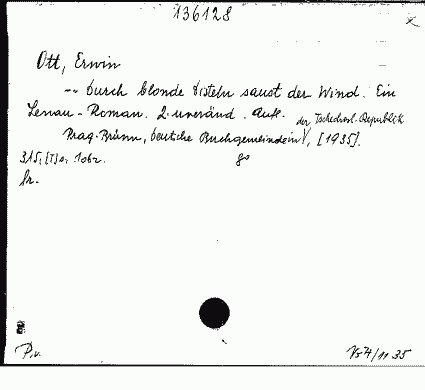 136128
Ott, Erwin
-- Durch blonde Disteln saust der Wind. Ein
Lenau-Roman. 2. unveränd. Aufl.
Prag-Brünn, Deutsche Buchgemeinde in der Tschechosl. Republik, [1935].
315, [1] S. 1 Abb.
go
br.
P.v.
/11 35